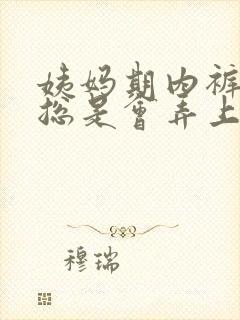 姨妈期内裤
总是会弄上
穆瑞